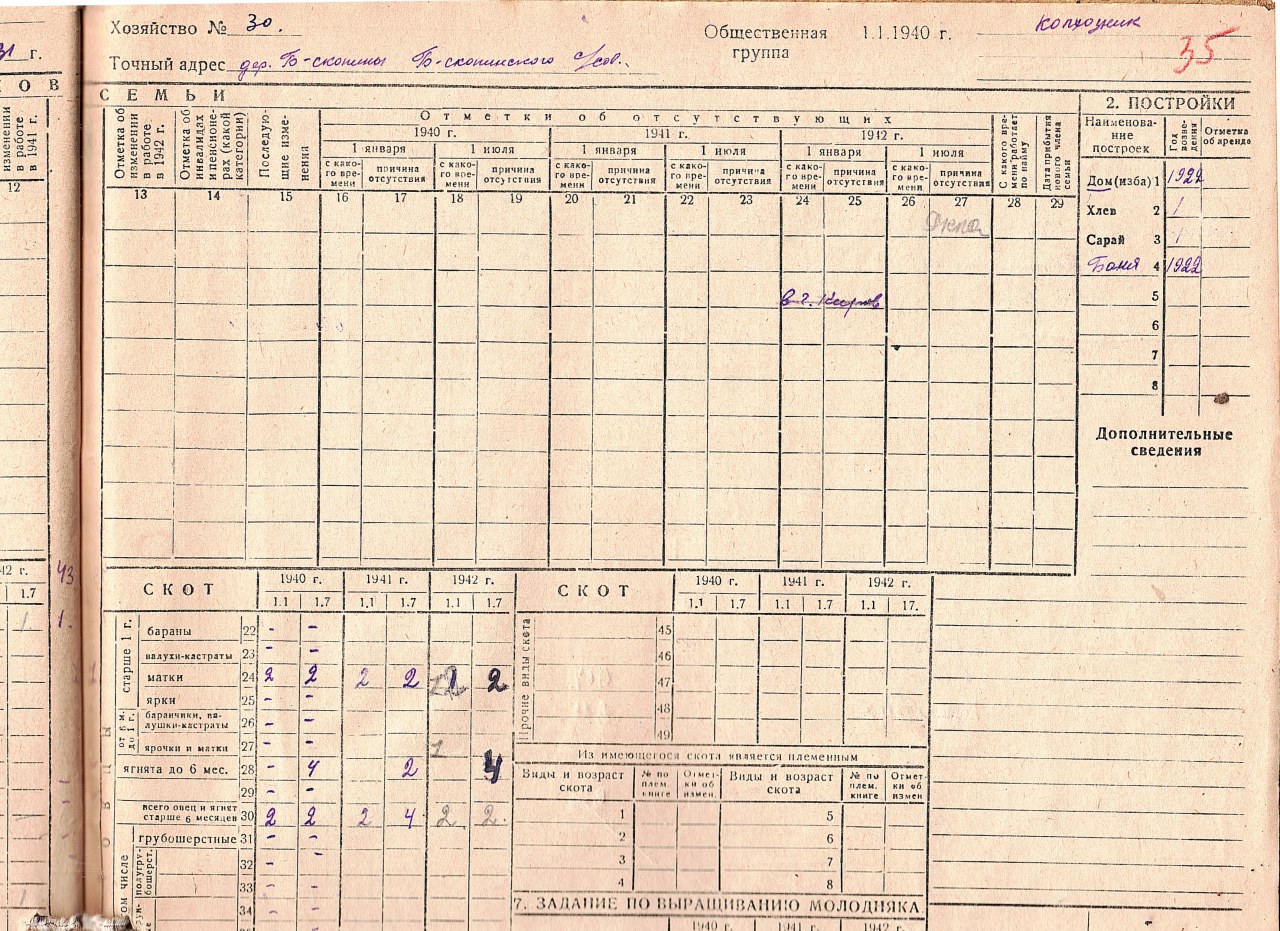 Хозяйство № 30.
Общественная группа 1.1.1940 г. колхозник
35
31 г.
Точный адрес дер. Б-скопины Б-скопинского с/сов.
КОВ
СЕМЬИ
изменении в работе в 1941 г.
Отметка об изменении в работе в 1942 г.
Отметка об инвалидах и пенсионерах (какой категории)
Последующие изменения
Отметки об отсутствующих
1940 г. 1941 г. 1942 г.
1 января 1 июля 1 января 1 июля 1 января 1 июля
с какого времени причина отсутствия с какого времени причина отсутствия с какого времени причина отсутствия с какого времени причина отсутствия с какого времени причина отсутствия с какого времени причина отсутствия
С какого времени работает по найму
Дата прибытия нового члена семьи
12 13 14 15 16 17 18 19 20 21 22 23 24 25 26 27 28 29
в г. Киров
2. ПОСТРОЙКИ
Наименование построек Год возведения Отметка об аренде
Дом (изба) 1 1922
Хлев 2 1
Сарай 3 1
Баня 4 1922
5
6
7
8
Дополнительные сведения
42 г. 43
1.7
1. 1.
СКОТ 1940 г. 1941 г. 1942 г.
1.1 1.7 1.1 1.7 1.1 1.7
старше 1 г.
бараны 22 - -
валухи-кастраты 23 - -
матки 24 2 2 2 2 2 2
ярки 25 - -
от 6 м. до 1 г.
баранчики, валушки-кастраты 26 - -
ярочки и матки 27 - - 1
ягнята до 6 мес. 28 - 4 2 4
29 - -
всего овец и ягнят старше 6 месяцев 30 2 2 2 4 2 2.
ОВЦЫ
том числе
грубошерстные 31 - -
полугрубошерст.
32 - -
33 - -
34 - -
СКОТ 1940 г. 1941 г. 1942 г.
1.1 1.7 1.1 1.7 1.1 17.
Прочие виды скота
45
46
47
48
49
Из имеющегося скота является племенным
Виды и возраст скота № по плем. книге Отметки об измен. Виды и возраст скота № по плем. книге Отметки об измен
1 5
2 6
3 7
4 8
7. ЗАДАНИЕ ПО ВЫРАЩИВАНИЮ МОЛОДНЯКА
1940 г. 1941 г. 1942 г.